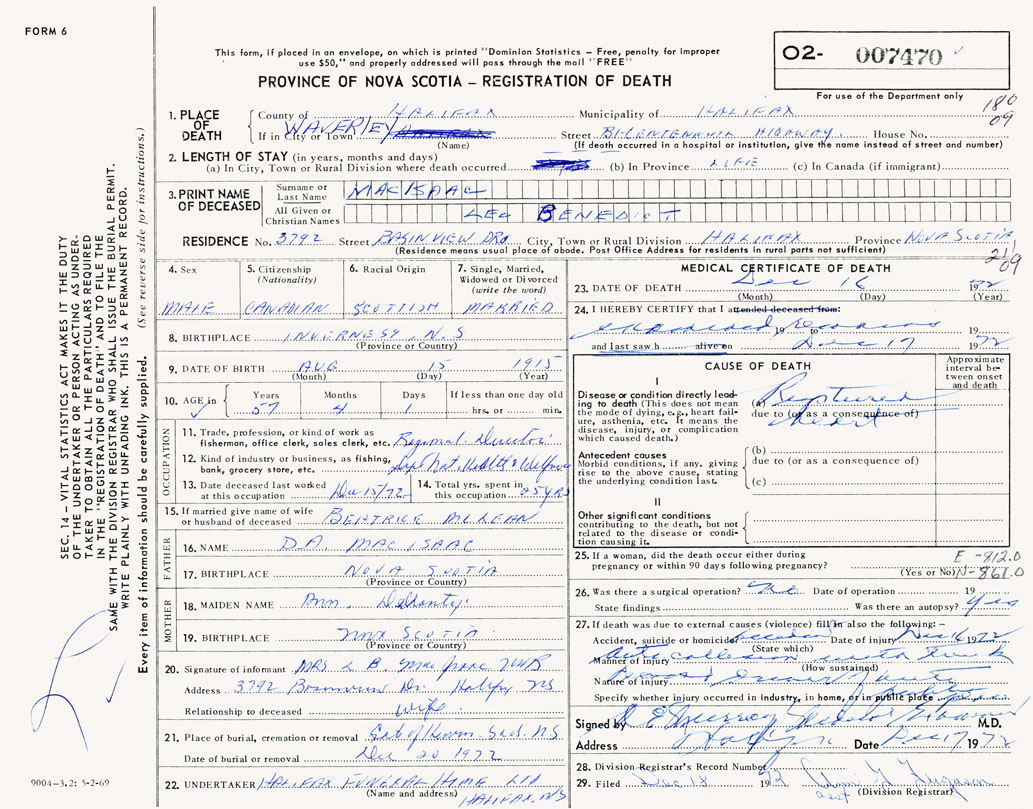 FORM 6
This form, if placed in an envelope, on which is printed "Dominion Statistics – Free, penalty for improper
use $50," and properly addressed will pass through the mail "FREE"
PROVINCE OF NOVA SCOTIA – REGISTRATION OF DEATH
O2- 007470
For use of the Department only
180
09
1. PLACE OF DEATH
County of HALIFAX Municipality of HALIFAX
If in City or Town WAVERLEY Street BI-CENTENNIAL HIGHWAY House No.
(Name) (If death occurred in a hospital or institution, give the name instead of street and number)
2. LENGTH OF STAY (in years, months and days)
(a) In City, Town or Rural Division where death occurred (b) In Province LIFE (c) In Canada (if immigrant)
3. PRINT NAME OF DECEASED
Surname or Last Name MACISAAC
All Given or Christian Names LEO BENEDICT
RESIDENCE No. 3792 Street BASINVIEW DR City, Town or Rural Division HALIFAX Province NOVA SCOTIA
(Residence means usual place of abode. Post Office Address for residents in rural parts not sufficient)
4. Sex MALE
5. Citizenship (Nationality) CANADIAN
6. Racial Origin SCOTTISH
7. Single, Married, Widowed or Divorced (write the word) MARRIED
8. BIRTHPLACE INVERNESS, N.S
(Province or Country)
9. DATE OF BIRTH AUG 15 1915
(Month) (Day) (Year)
10. AGE in Years Months Days If less than one day old
57 4 1 hrs. or min.
OCCUPATION
11. Trade, profession, or kind of work as
fisherman, office clerk, sales clerk, etc. Regional Director
12. Kind of industry or business, as fishing,
bank, grocery store, etc. Nat. Health & Welfare
13. Date deceased last worked
at this occupation Dec 15/72
14. Total yrs. spent in
this occupation 25 yrs
15. If married give name of wife
or husband of deceased BEATRICE MCLEAN
FATHER
16. NAME D.A. MACISAAC
17. BIRTHPLACE NOVA SCOTIA
(Province or Country)
MOTHER
18. MAIDEN NAME Ann Delhanty
19. BIRTHPLACE NOVA SCOTIA
(Province or Country)
20. Signature of informant MRS L B MacIsaac
Address 3792 Basinview Dr. Halifax NS
Relationship to deceased wife
21. Place of burial, cremation or removal Gate of Heaven NS
Date of burial or removal Dec 20 1972
22. UNDERTAKER HALIFAX FUNERAL HOME LTD
(Name and address) HALIFAX. NS
MEDICAL CERTIFICATE OF DEATH
23. DATE OF DEATH Dec 16 1972
(Month) (Day) (Year)
24. I HEREBY CERTIFY that I attended deceased from:
examined remains 19 to
and last saw h alive on Dec 17 1972
CAUSE OF DEATH
Approximate interval between onset and death
I
Disease or condition directly leading to death (This does not mean
the mode of dying, e.g., heart failure, asthenia, etc. It means the
disease, injury, or complication
which caused death.)
(a) Ruptured
due to (or as a consequence of)
heart
Antecedent causes
Morbid conditions, if any, giving
rise to the above cause, stating
the underlying condition last.
(b)
due to (or as a consequence of)
(c)
II
Other significant conditions
contributing to the death, but not
related to the disease or condition causing it.
25. If a woman, did the death occur either during
pregnancy or within 90 days following pregnancy?
(Yes or No)
E -812.0
N-861.0
26. Was there a surgical operation? no Date of operation 19
State findings Was there an autopsy? Yes
27. If death was due to external causes (violence) fill in also the following: –
Accident, suicide or homicide? accident Date of injury Dec 16 1972
(State which)
Manner of injury Auto collision with truck
(How sustained)
Nature of injury
Specify whether injury occurred in industry, in home, or in public place
Signed by M.D.
Address Halifax Date Dec 17 1972
28. Division Registrar's Record Number
29. Filed Dec 18 1972
asst (Division Registrar)
SEC. 14 – VITAL STATISTICS ACT MAKES IT THE DUTY
OF THE UNDERTAKER OR PERSON ACTING AS UNDERTAKER TO OBTAIN ALL THE PARTICULARS REQUIRED
IN THE "REGISTRATION OF DEATH" AND TO FILE THE
SAME WITH THE DIVISION REGISTRAR WHO SHALL ISSUE THE BURIAL PERMIT.
WRITE PLAINLY WITH UNFADING INK. THIS IS A PERMANENT RECORD.
Every item of information should be carefully supplied. (See reverse side for instructions.)
9004-3.2: 5-2-69